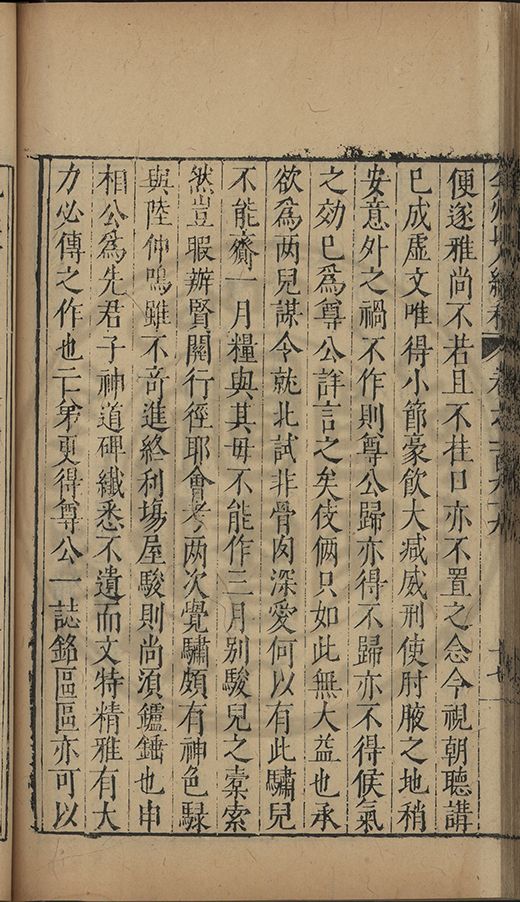 弇州山人續稿 卷之一百
便遂雅尚不若且不挂口亦不置之念今視朝聽講
已成虛文唯得小節豪飲大减威刑使肘腋之地稍
安意外之禍不作則尊公歸亦得不歸亦不得候氣
之効已爲尊公詳言之矣伎倆只如此無大益也承
欲爲两兒謀令就北試非骨肉深愛何以有此驌兒
不能齎一月糧與其母不能作三月別駿兒之槖索
然豈暇辦賢關行徑耶會考两次覺驌頗有神色騄
與陸仲鳴雖不奇進終利塲屋駿則尚湏鑪錘也申
相公爲先君子神道碑纖悉不遺而文特精雅有大
力必傳之作也亡苐更得尊公一誌銘區區亦可以